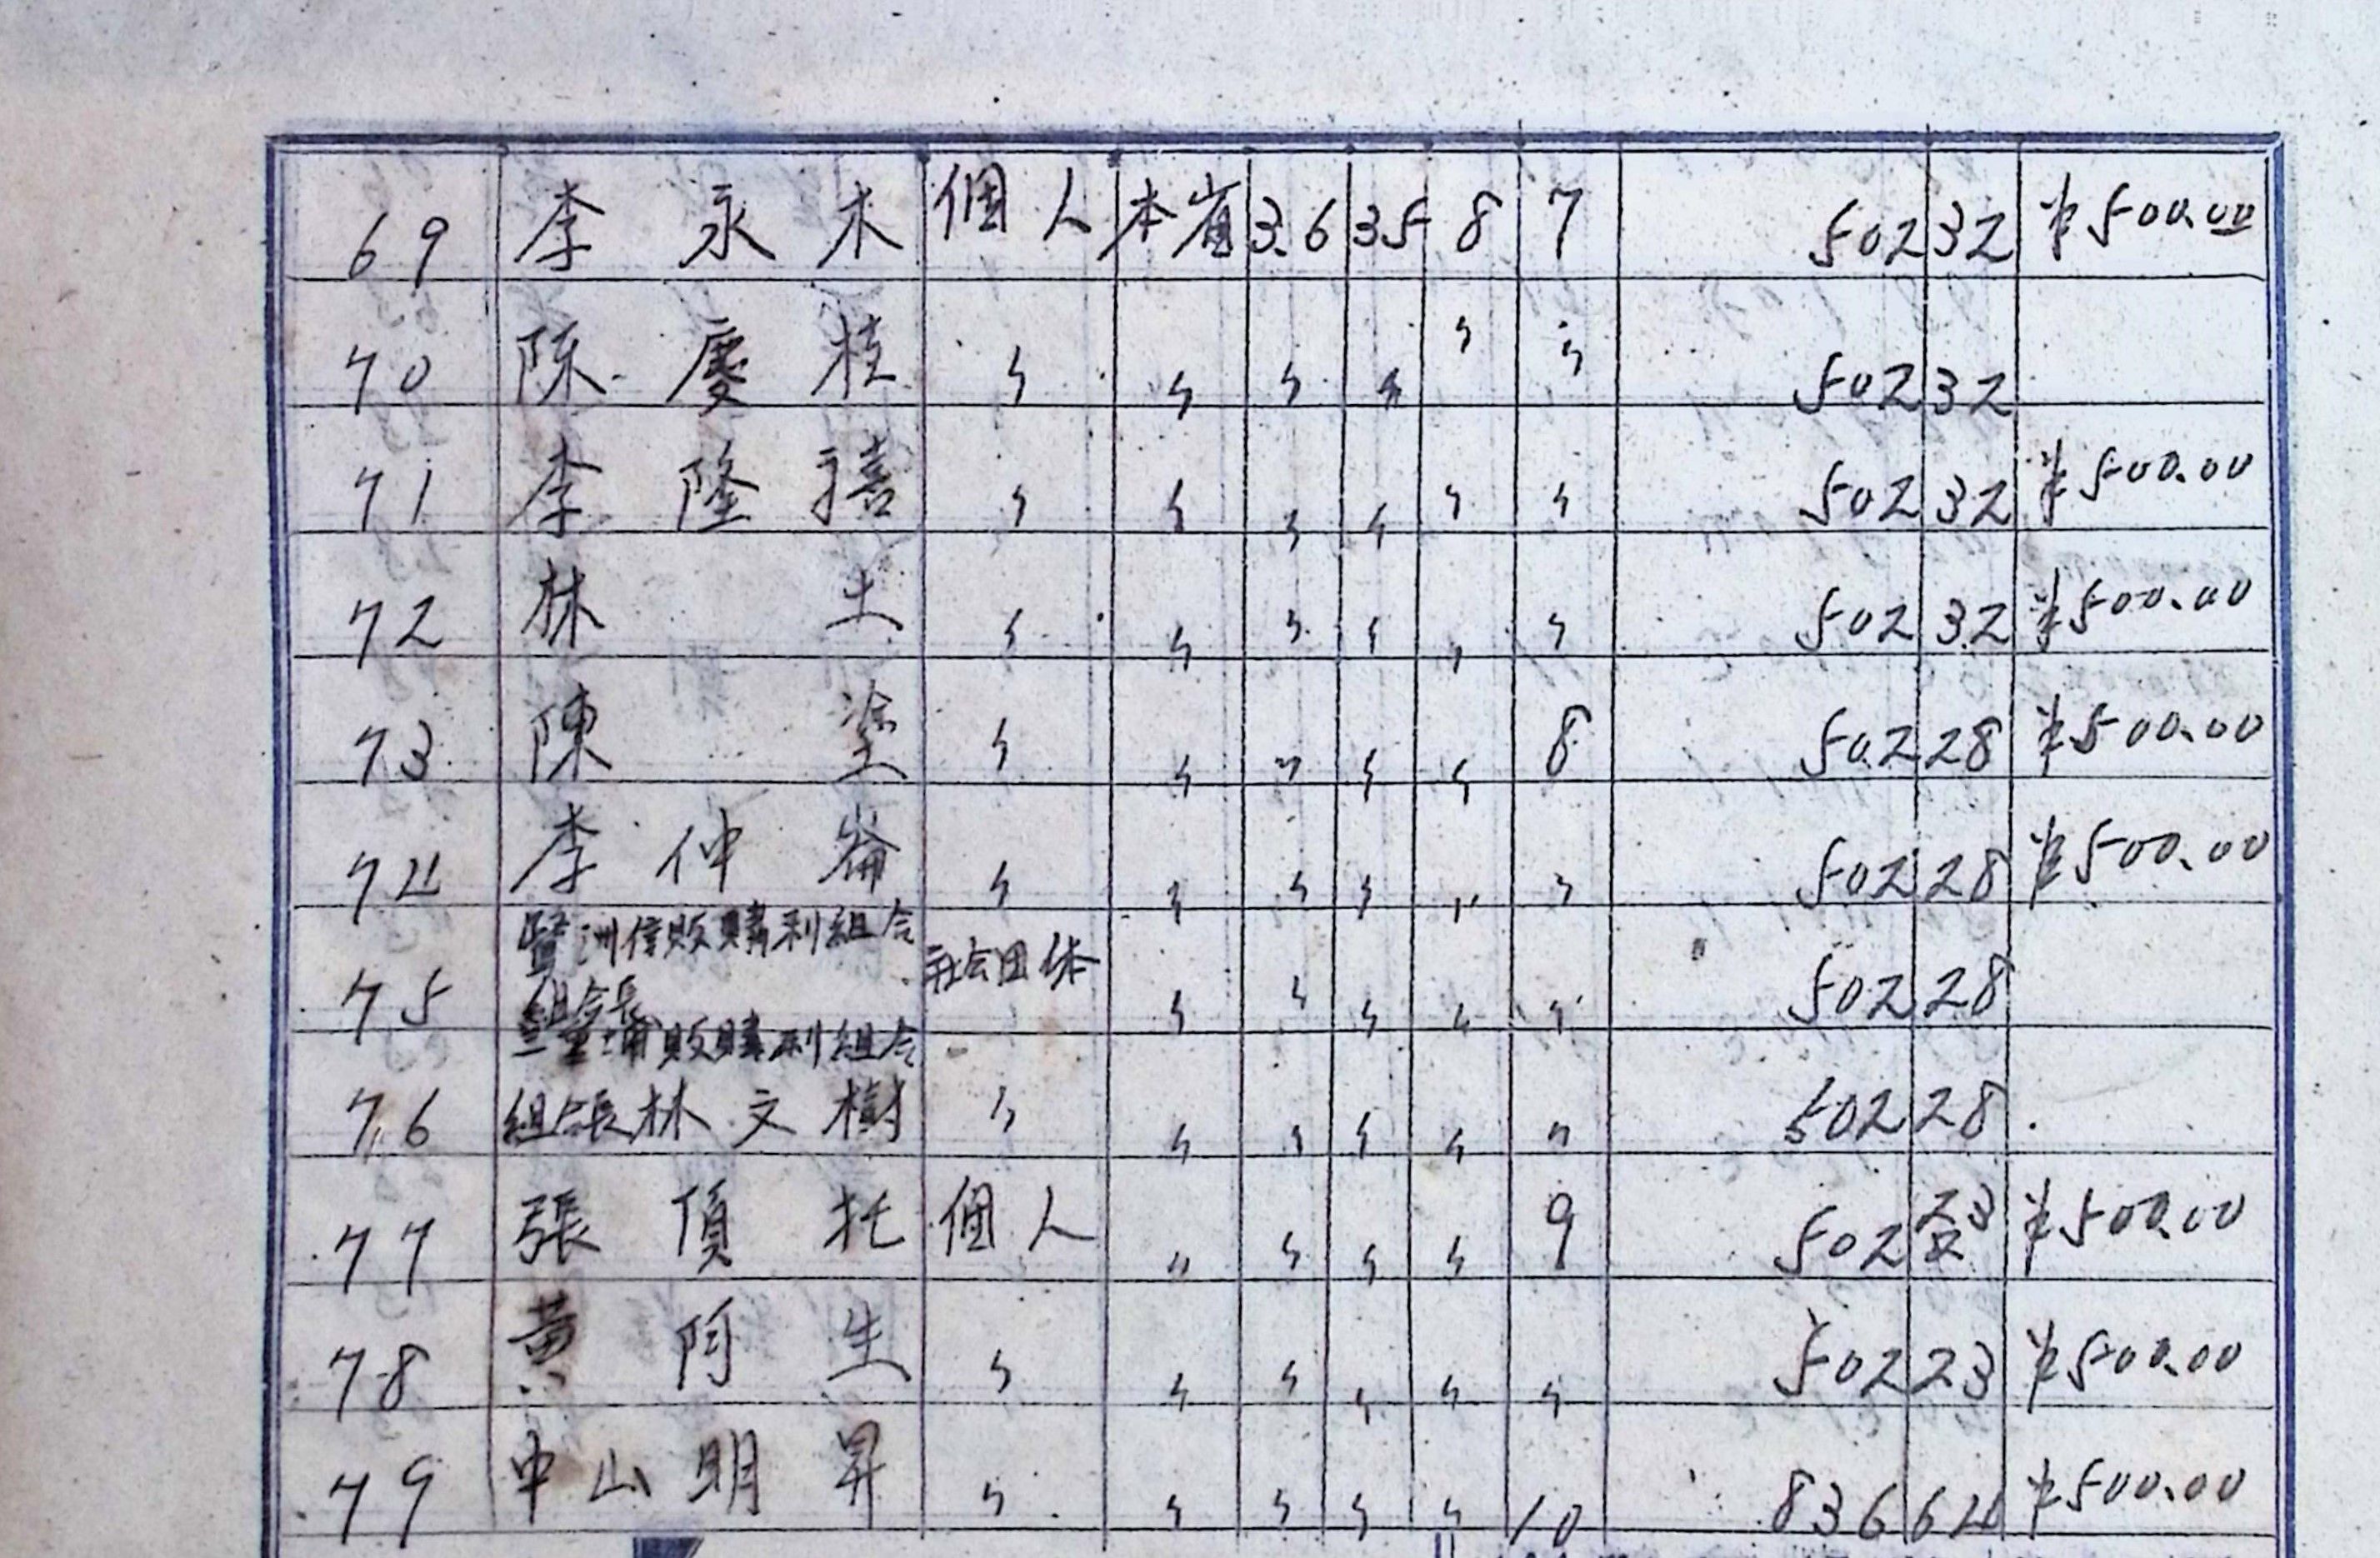 69 李永木 個人 本省 3.6 35 8 7 50232 ¥500.00
70 陳慶桂 〃 〃 〃 〃 〃 〃 50232
71 李隆禧 〃 〃 〃 〃 〃 〃 50232 ¥500.00
72 林土 〃 〃 〃 〃 〃 〃 50232 ¥500.00
73 陳塗 〃 〃 〃 〃 〃 8 50228 ¥500.00
74 李仲崙 〃 〃 〃 〃 〃 〃 50228 ¥500.00
鷺洲信販購利組合
75 組合長 社会団体 〃 〃 〃 〃 〃 50228
三重埔販購利組合
76 組合長林文樹 〃 〃 〃 〃 〃 〃 50228
77 張頂托 個人 〃 〃 〃 〃 9 50223 ¥500.00
78 黃阿生 〃 〃 〃 〃 〃 〃 50223 ¥500.00
79 中山明昇 〃 〃 〃 〃 〃 10 83664 ¥500.00